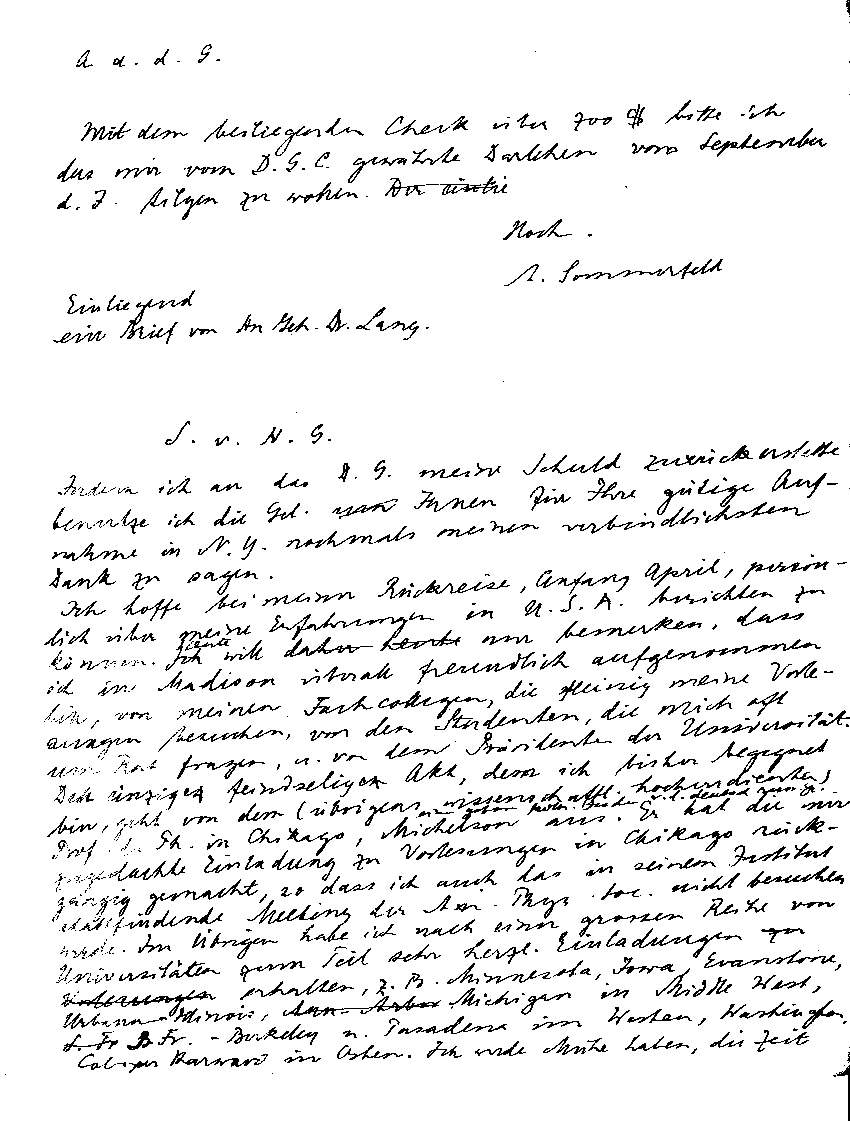 A. a. d. G.
Mit dem beiliegenden Check über 700 $ bitte ich
das mir vom D.G.C. gewährte Darlehen vom September
d. J. tilgen zu wollen. Der einlie
Hoch.
A. Sommerfeld
Einliegend
ein Brief von Hn Geh. Dr. Lang.
S. v. H. G.
Indem ich an das D. G. meine Schuld zurückerstatte
benutze ich die Gel. um Ihnen für Ihre gütige Auf-
nahme in N.Y. nochmals meinen verbindlichsten
Dank zu sagen.
Ich hoffe bei meiner Rückreise, Anfang April, persön-
lich über meine Erfahrungen in U.S.A. berichten zu
können. Ich will daher heute nur bemerken, dass
ich in Madison überall freundlich aufgenommen
bin, von meinen Fachcollegen, die fleissig meine Vorle-
sungen besuchen, von den Studenten, die mich oft
um Rat fragen, u. von dem Präsidenten der Universität.
Der einzige feindselige Akt, dem ich bisher begegnet
bin, geht von dem (übrigens wissenschaftl. hochverdienten)
Prof. Ph. in Chikago, Michelson aus. Er hat die mir
zugedachte Einladung zu Vorlesungen in Chikago rück-
gängig gemacht, so dass ich auch das in seinem Institut
stattfindende Meeting der Am. Phys. Soc. nicht besuchen
werde. Im Übrigen habe ich nach einer grossen Reihe von
Universitäten zum Teil sehr herzl. Einladungen zu
Vorlesungen erhalten, z. B. Minnesota, Iowa, Evanstone,
Urbana-Illinois, Ann-Arbor Michigan in Middle West,
S. Fr. - Berkeley u. Pasadena im Westen, Washington,
Harward im Osten. Ich werde Mühe haben, die Zeit